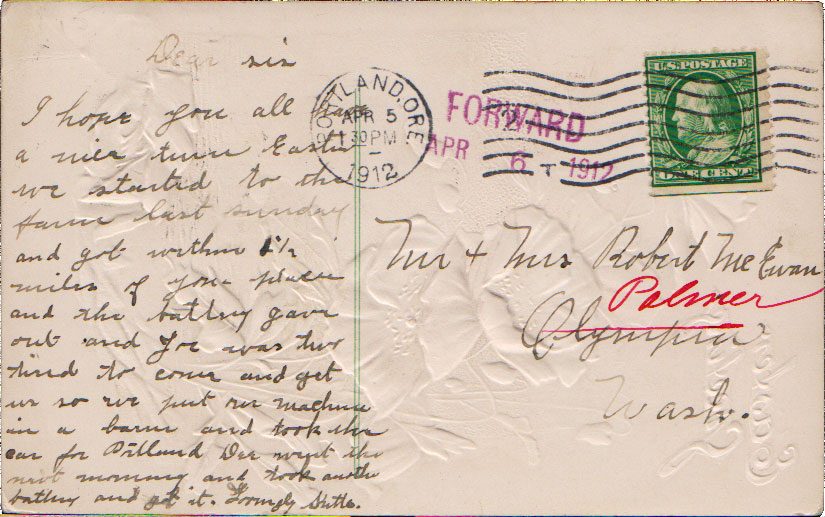 Dear sis
I hope you all
a nice time Easter
we started to the
farm last sunday
and got within 1½
miles of your place
and the battery gave
out and Joe was two
tired to come and get
us so we put our machine
in a barn and took the
car for Portland Dee went the
next morning and took another
battery and got it. Lovingly
PORTLAND, ORE
APR 5
1 30 PM
1912
FORWARD
APR 6 1912
U.S. POSTAGE
ONE CENT
Mr + Mrs Robert McEwan
Palmer
Olympia
Wash.